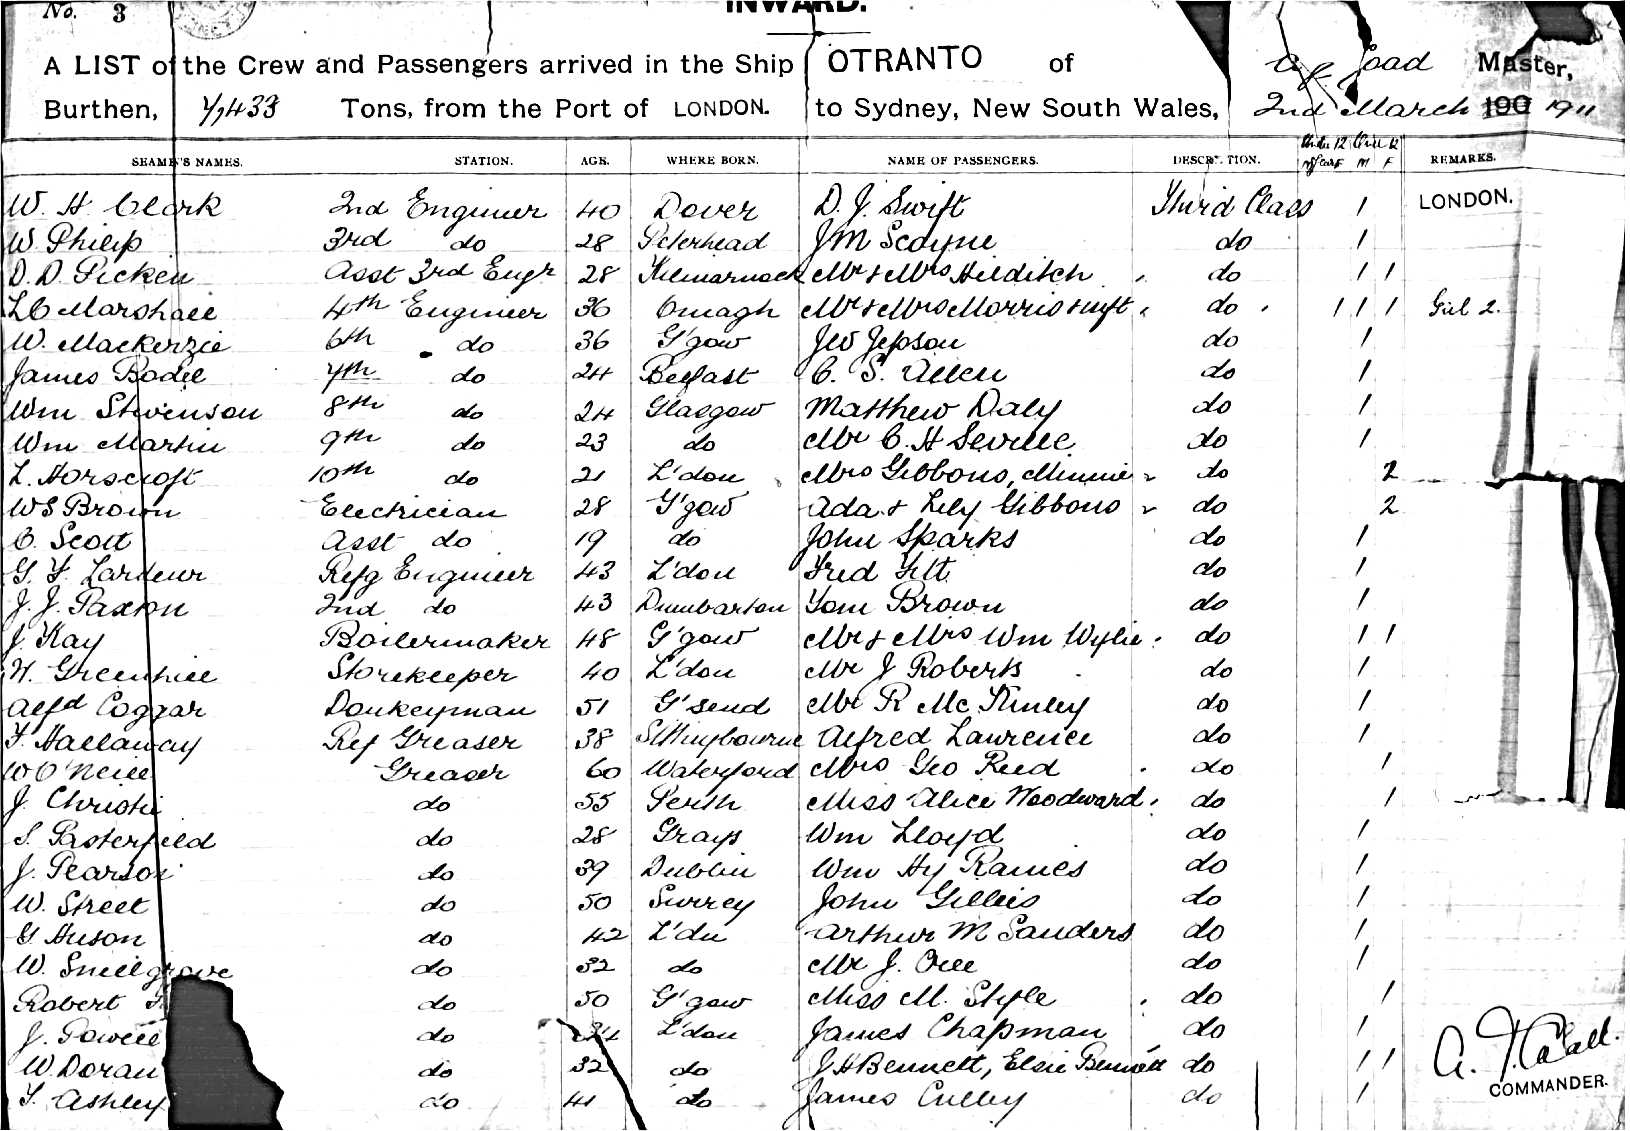 No. 3
INWARD.
A LIST of the Crew and Passengers arrived in the Ship OTRANTO of Master,
Burthen, 7,433 Tons, from the Port of LONDON. to Sydney, New South Wales, 2nd March 190 1911
SEAMEN'S NAMES. STATION. AGE. WHERE BORN. NAME OF PASSENGERS. DESCRIPTION. Under 12 years Over 12 M F REMARKS.
W. H. Clark 2nd Engineer 40 Dover D. J. Swift Third Class 1 LONDON.
W. Philip 3rd do 28 Peterhead J M Scoyne do 1
D. D. Picken Asst 3rd Engr 28 Kilmarnock Mr & Mrs Hilditch do 1 1
L C Marshall 4th Engineer 36 Omagh Mr & Mrs Morris & inft do 1 1 1 Girl 2.
W. Mackenzie 6th do 36 G'gow J W Jepson do 1
James Bodie 7th do 24 Belfast C. S. Allen do 1
Wm Stevenson 8th do 24 Glasgow Matthew Daly do 1
Wm Martin 9th do 23 do Mr C. H Seville do 1
L. Horscroft 10th do 21 L'don Mrs Gibbons, Minnie do 2
W S Brown Electrician 28 G'gow Ada & Lily Gibbons do 2
C. Scott Asst do 19 do John Sparks do 1
G. F. Lardeur Refg Engineer 43 L'don Fred Filt do 1
J. J. Paxton 2nd do 43 Dumbarton Tom Brown do 1
J. Kay Boilermaker 48 G'gow Mr & Mrs Wm Wylie do 1 1
H. Greenhill Storekeeper 40 L'don Mr J Roberts do 1
Alfd Coggar Donkeyman 51 G'send Mr R McKinley do 1
F. Hallaway Ref Greaser 38 Sittingbourne Alfred Lawrence do 1
W O'Neill Greaser 60 Waterford Mrs Geo Reed do 1
J. Christie do 55 Perth Miss Alice Woodward do 1
S. Pasterfield do 28 Grays Wm Lloyd do 1
J. Pearson do 39 Dublin Wm Hy Raines do 1
W. Street do 50 Surrey John Gillies do 1
G Huson do 42 L'dn Arthur M Sanders do 1
W. Snellgrove do 32 do Mr J. Orr do 1
Robert do 50 G'gow Miss M. Style do 1
J. Powell do L'don James Chapman do 1
W. Doran do 32 do J H Bennett, Elsie Bennett do 1 1
F. Ashley do 41 do James Culley do 1
COMMANDER.